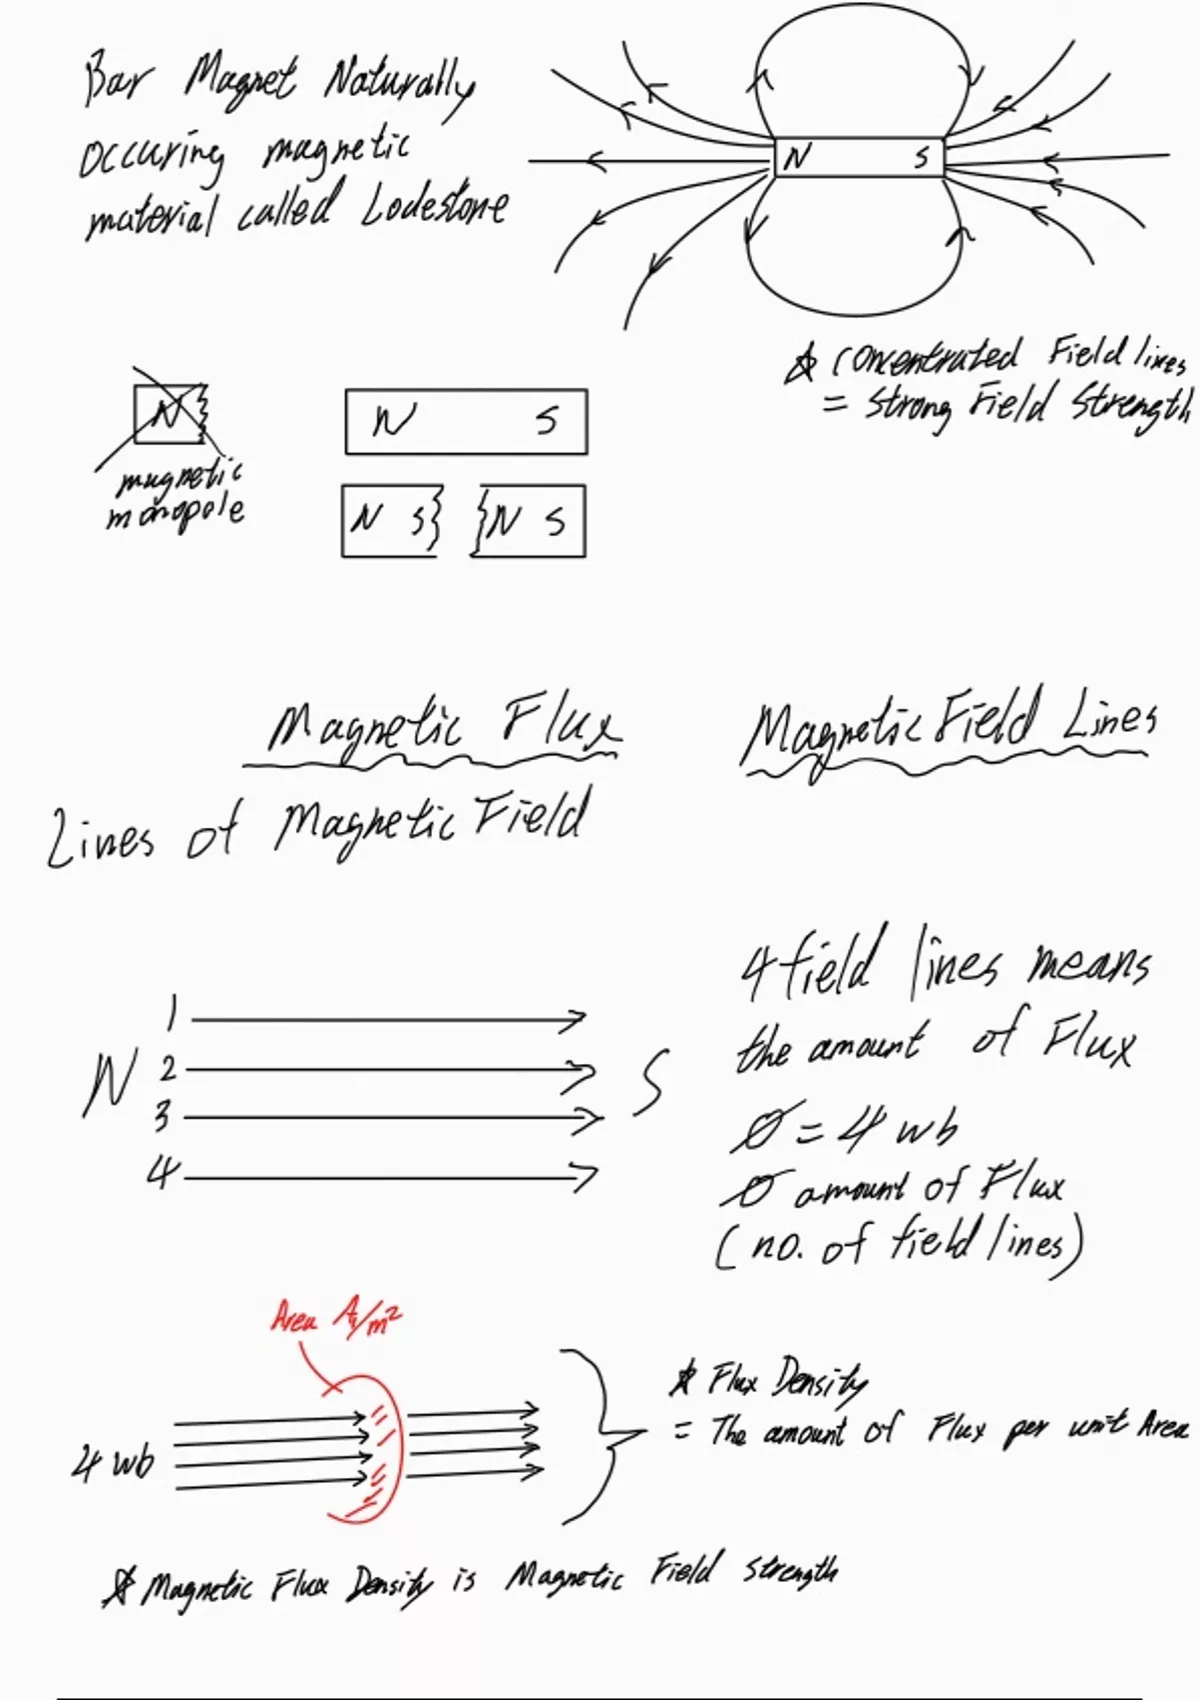 Bar Magnet Naturally
occuring magnetic
material called Lodestone
N S
☆ Concentrated Field lines
= Strong Field Strength
N
magnetic
monopole
N S
N S
N S
Magnetic Flux
Magnetic Field Lines
Lines of Magnetic Field
1
2
3
4
N
S
4 field lines means
the amount of Flux
Ø = 4 wb
Ø amount of Flux
(no. of field lines)
Area A/m²
4 wb
☆ Flux Density
= The amount of Flux per unit Area
☆ Magnetic Flux Density is Magnetic Field strength